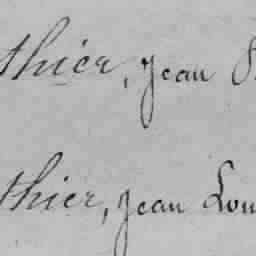 thier, Jean
thier, Jean Lou